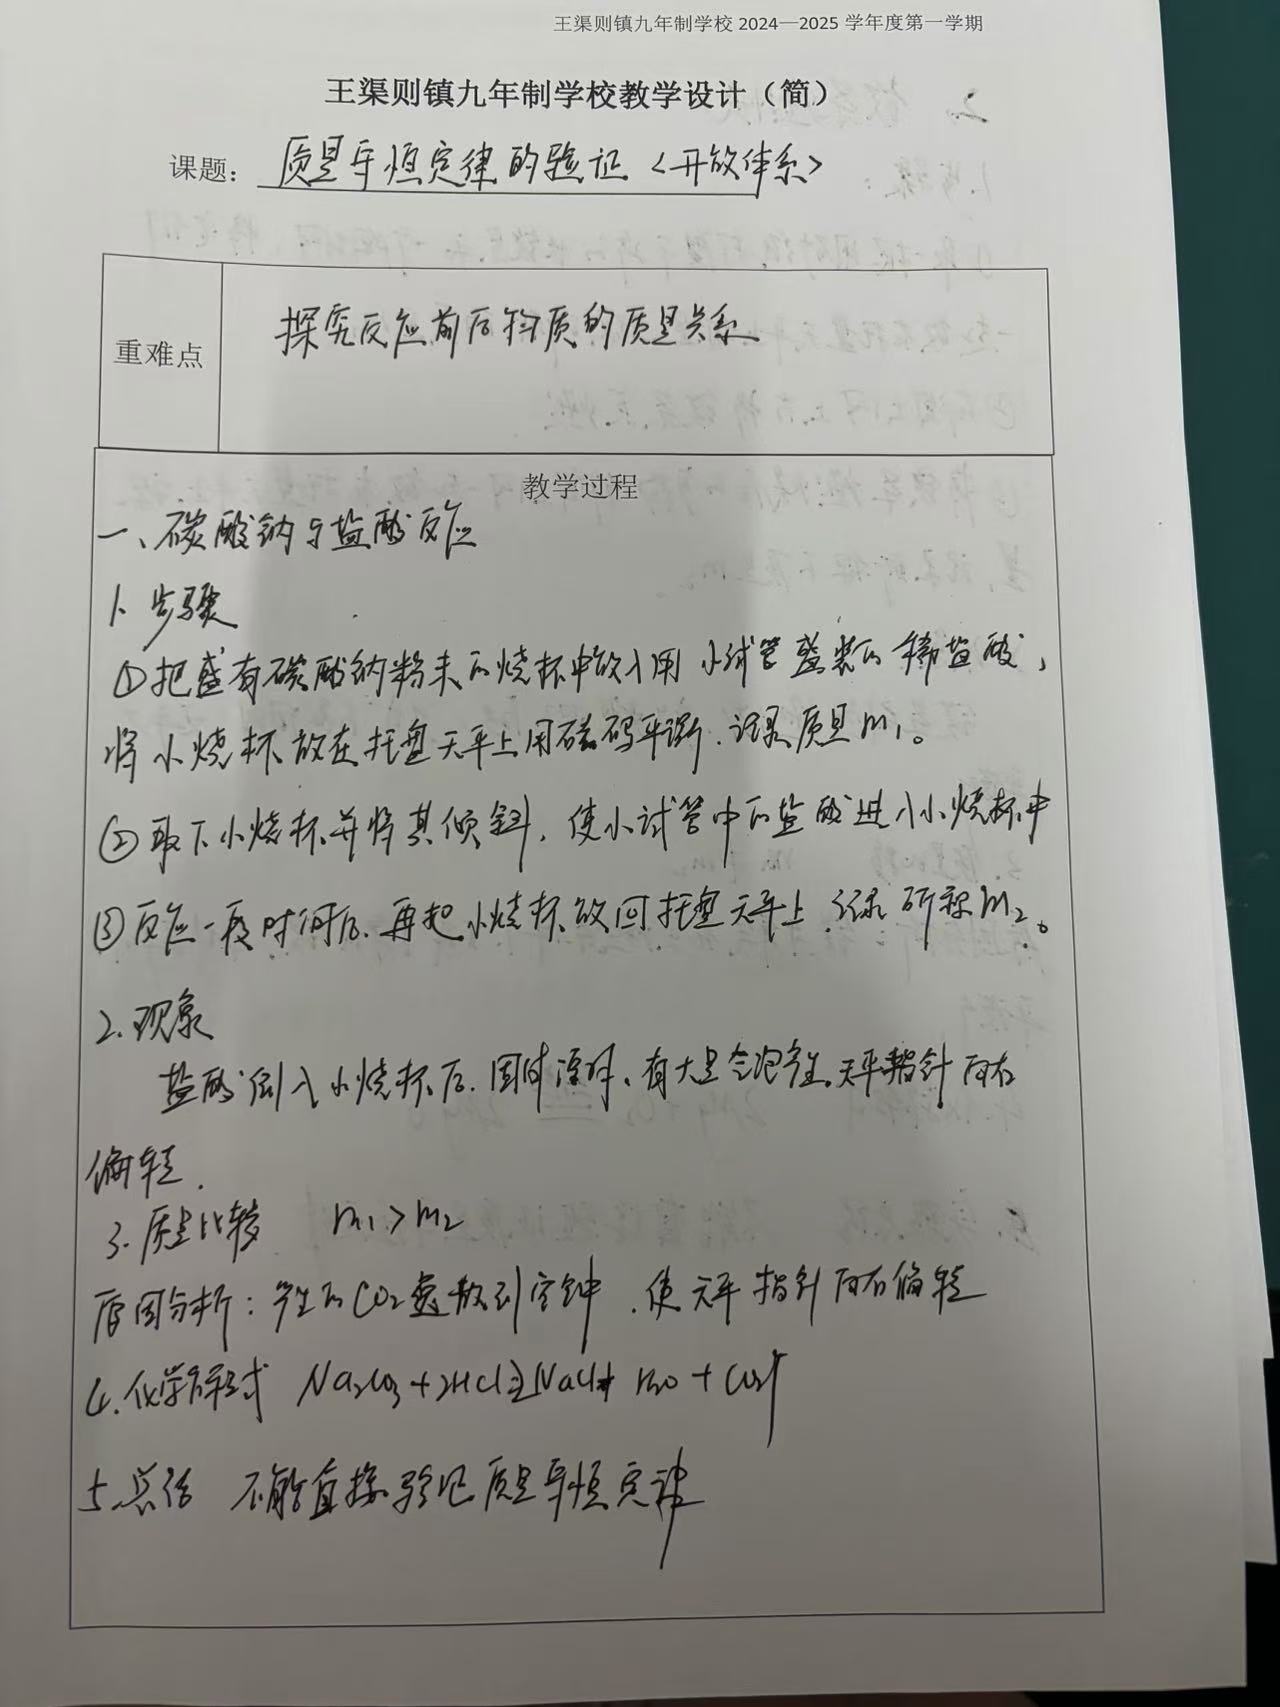 王渠则镇九年制学校 2024—2025 学年度第一学期
王渠则镇九年制学校教学设计（简）
课题： 质量守恒定律的验证〈开放体系〉
重难点
探究反应前后物质的质量关系
教学过程
一、碳酸钠与盐酸反应
1. 步骤
①把盛有碳酸钠粉末的烧杯中放入用小试管盛装的稀盐酸，
将小烧杯放在托盘天平上用砝码平衡，记录质量m₁。
②取下小烧杯并将其倾斜，使小试管中的盐酸进入小烧杯中
③反应一段时间后，再把小烧杯放回托盘天平上，记录所称m₂。
2.现象
盐酸倒入小烧杯后，固体溶解、有大量气泡产生。天平指针向右
偏转.
3.质量比较 m₁>m₂
原因分析：产生的CO₂逸散到空中，使天平指针向右偏转
4.化学方程式 Na₂CO₃+2HCl=2NaCl+H₂O+CO₂↑
5.总结 不能直接验证质量守恒定律